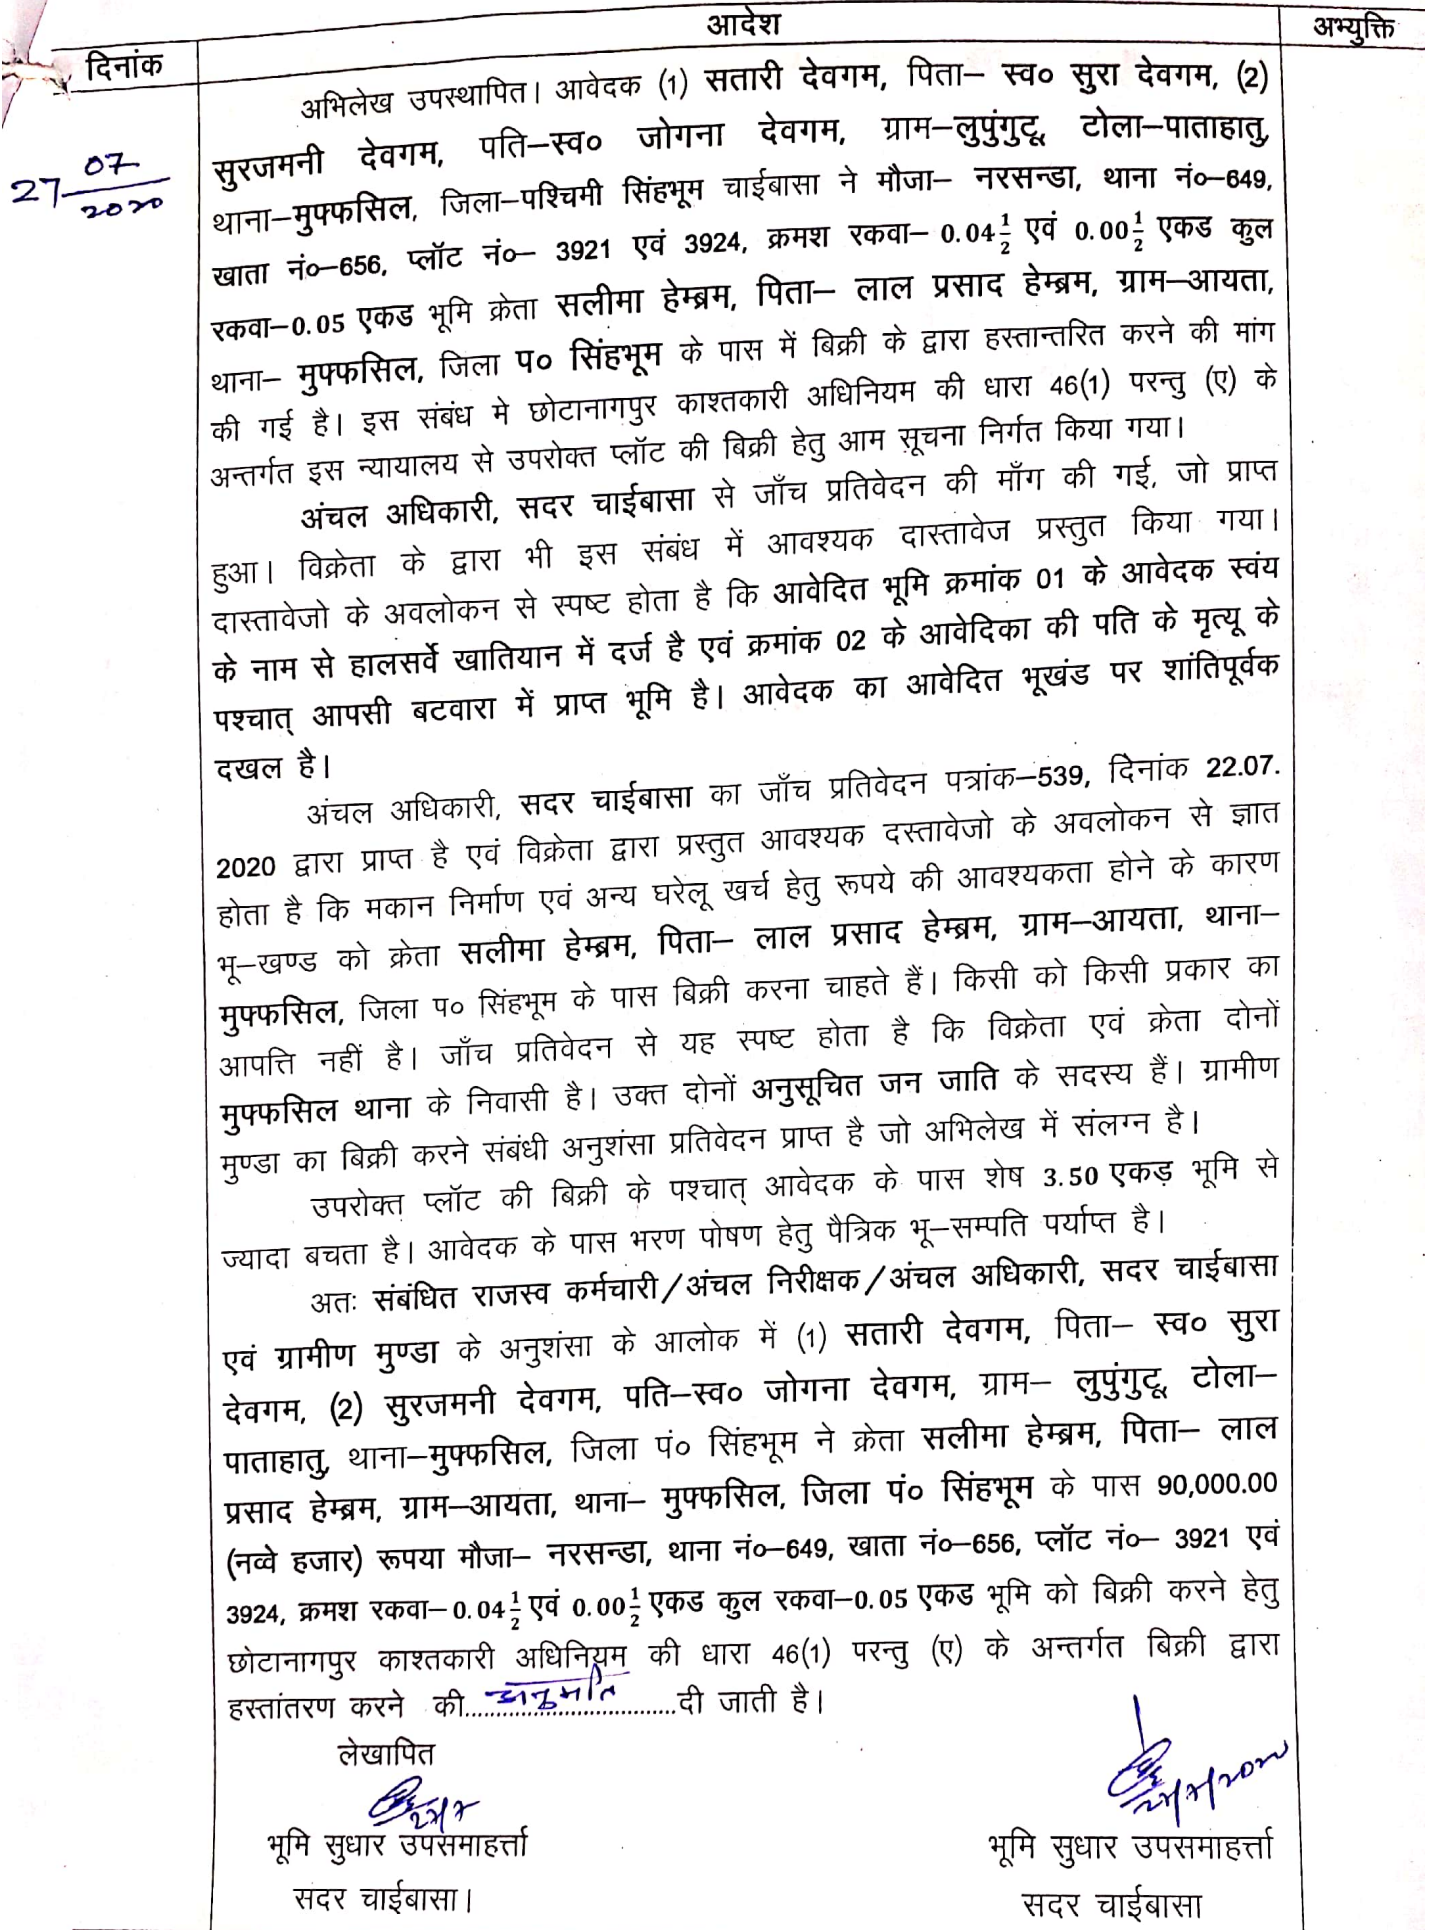 दिनांक
आदेश
अभ्युक्ति
27 07/2020
अभिलेख उपस्थापित। आवेदक (1) सतारी देवगम, पिता– स्व० सुरा देवगम, (2)
सुरजमनी देवगम, पति–स्व० जोगना देवगम, ग्राम–लुपुंगुटू, टोला–पाताहातु,
थाना–मुफ्फसिल, जिला–पश्चिमी सिंहभूम चाईबासा ने मौजा– नरसन्डा, थाना नं०–649,
खाता नं०–656, प्लॉट नं०– 3921 एवं 3924, क्रमश रकवा– 0.04½ एवं 0.00½ एकड कुल
रकवा–0.05 एकड भूमि क्रेता सलीमा हेम्ब्रम, पिता– लाल प्रसाद हेम्ब्रम, ग्राम–आयता,
थाना– मुफ्फसिल, जिला प० सिंहभूम के पास में बिक्री के द्वारा हस्तान्तरित करने की मांग
की गई है। इस संबंध मे छोटानागपुर काश्तकारी अधिनियम की धारा 46(1) परन्तु (ए) के
अन्तर्गत इस न्यायालय से उपरोक्त प्लॉट की बिक्री हेतु आम सूचना निर्गत किया गया।
अंचल अधिकारी, सदर चाईबासा से जाँच प्रतिवेदन की माँग की गई, जो प्राप्त
हुआ। विक्रेता के द्वारा भी इस संबंध में आवश्यक दास्तावेज प्रस्तुत किया गया।
दास्तावेजो के अवलोकन से स्पष्ट होता है कि आवेदित भूमि क्रमांक 01 के आवेदक स्वंय
के नाम से हालसर्वे खातियान में दर्ज है एवं क्रमांक 02 के आवेदिका की पति के मृत्यू के
पश्चात् आपसी बटवारा में प्राप्त भूमि है। आवेदक का आवेदित भूखंड पर शांतिपूर्वक
दखल है।
अंचल अधिकारी, सदर चाईबासा का जाँच प्रतिवेदन पत्रांक–539, दिनांक 22.07.
2020 द्वारा प्राप्त है एवं विक्रेता द्वारा प्रस्तुत आवश्यक दस्तावेजो के अवलोकन से ज्ञात
होता है कि मकान निर्माण एवं अन्य घरेलू खर्च हेतु रूपये की आवश्यकता होने के कारण
भू–खण्ड को क्रेता सलीमा हेम्ब्रम, पिता– लाल प्रसाद हेम्ब्रम, ग्राम–आयता, थाना–
मुफ्फसिल, जिला प० सिंहभूम के पास बिक्री करना चाहते हैं। किसी को किसी प्रकार का
आपत्ति नहीं है। जाँच प्रतिवेदन से यह स्पष्ट होता है कि विक्रेता एवं क्रेता दोनों
मुफ्फसिल थाना के निवासी है। उक्त दोनों अनुसूचित जन जाति के सदस्य हैं। ग्रामीण
मुण्डा का बिक्री करने संबंधी अनुशंसा प्रतिवेदन प्राप्त है जो अभिलेख में संलग्न है।
उपरोक्त प्लॉट की बिक्री के पश्चात् आवेदक के पास शेष 3.50 एकड़ भूमि से
ज्यादा बचता है। आवेदक के पास भरण पोषण हेतु पैत्रिक भू–सम्पति पर्याप्त है।
अतः संबंधित राजस्व कर्मचारी/अंचल निरीक्षक/अंचल अधिकारी, सदर चाईबासा
एवं ग्रामीण मुण्डा के अनुशंसा के आलोक में (1) सतारी देवगम, पिता– स्व० सुरा
देवगम, (2) सुरजमनी देवगम, पति–स्व० जोगना देवगम, ग्राम– लुपुंगुटू, टोला–
पाताहातु, थाना–मुफ्फसिल, जिला पं० सिंहभूम ने क्रेता सलीमा हेम्ब्रम, पिता– लाल
प्रसाद हेम्ब्रम, ग्राम–आयता, थाना– मुफ्फसिल, जिला पं० सिंहभूम के पास 90,000.00
(नव्वे हजार) रूपया मौजा– नरसन्डा, थाना नं०–649, खाता नं०–656, प्लॉट नं०– 3921 एवं
3924, क्रमश रकवा–0.04½ एवं 0.00½ एकड कुल रकवा–0.05 एकड भूमि को बिक्री करने हेतु
छोटानागपुर काश्तकारी अधिनियम की धारा 46(1) परन्तु (ए) के अन्तर्गत बिक्री द्वारा
हस्तांतरण करने की....अनुमति....दी जाती है।
लेखापित
27/7
27/7/2020
भूमि सुधार उपसमाहर्त्ता
सदर चाईबासा।
भूमि सुधार उपसमाहर्त्ता
सदर चाईबासा